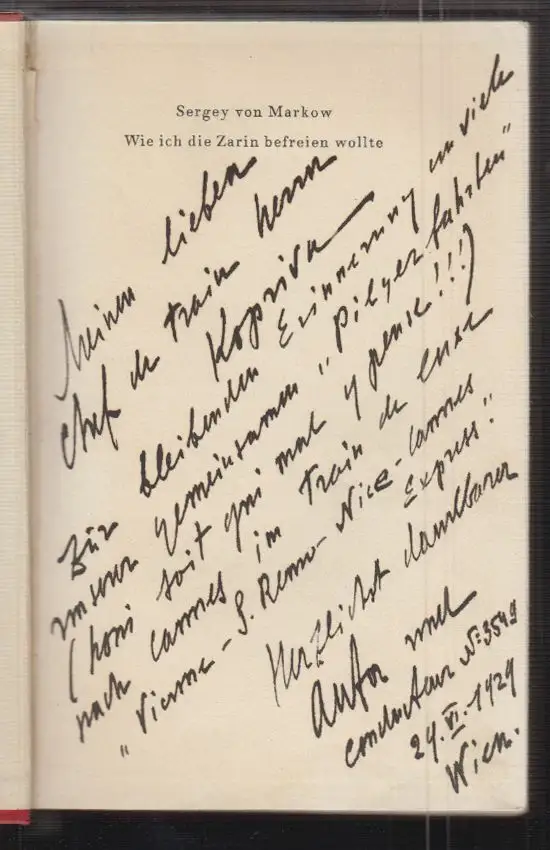 Sergey von Markow
Wie ich die Zarin befreien wollte
Meinem lieben
Chef de train Herrn
Kopriva
Zur bleibenden Erinnerung an viele
unserer gemeinsamen „Pilgerfahrten"
(honi soit qui mal y pense!!!)
nach Cannes im Train de Luxe
„Vienne - S. Remo - Nice - Cannes
Express".
Herzlichst dankbarer
Autor und
conducteur No: 3549
24. VI. 1929
Wien.